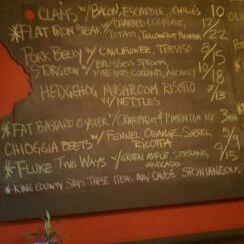 CLAMS W/ BACON, ESCAROLE, CHILIS 10
*FLAT IRON STEAK W/ CHARRED EGGPLANT, 13/22
TOMATO, YELLOWFOOT
PORK BELLY W/ CAULIFLOWER, TREVISO 8/15
STURGEON W/ BRUSSELS SPROUTS, 10/18
PINE NUTS, CURRANTS,
HEDGEHOG MUSHROOM RISOTTO 7/13
W/ NETTLES
*FAT BASTARD OYSTER W/ GRAPEFRUIT & PIMENTON ICE 3
CHIOGGIA BEETS W/ FENNEL, ORANGE, 5/9
RICOTTA
*FLUKE TWO WAYS W/ GREEN APPLE, 9/15
AVOCADO
*KING COUNTY SAYS THESE ITEMS MAY CAUSE SPONTANEOUS